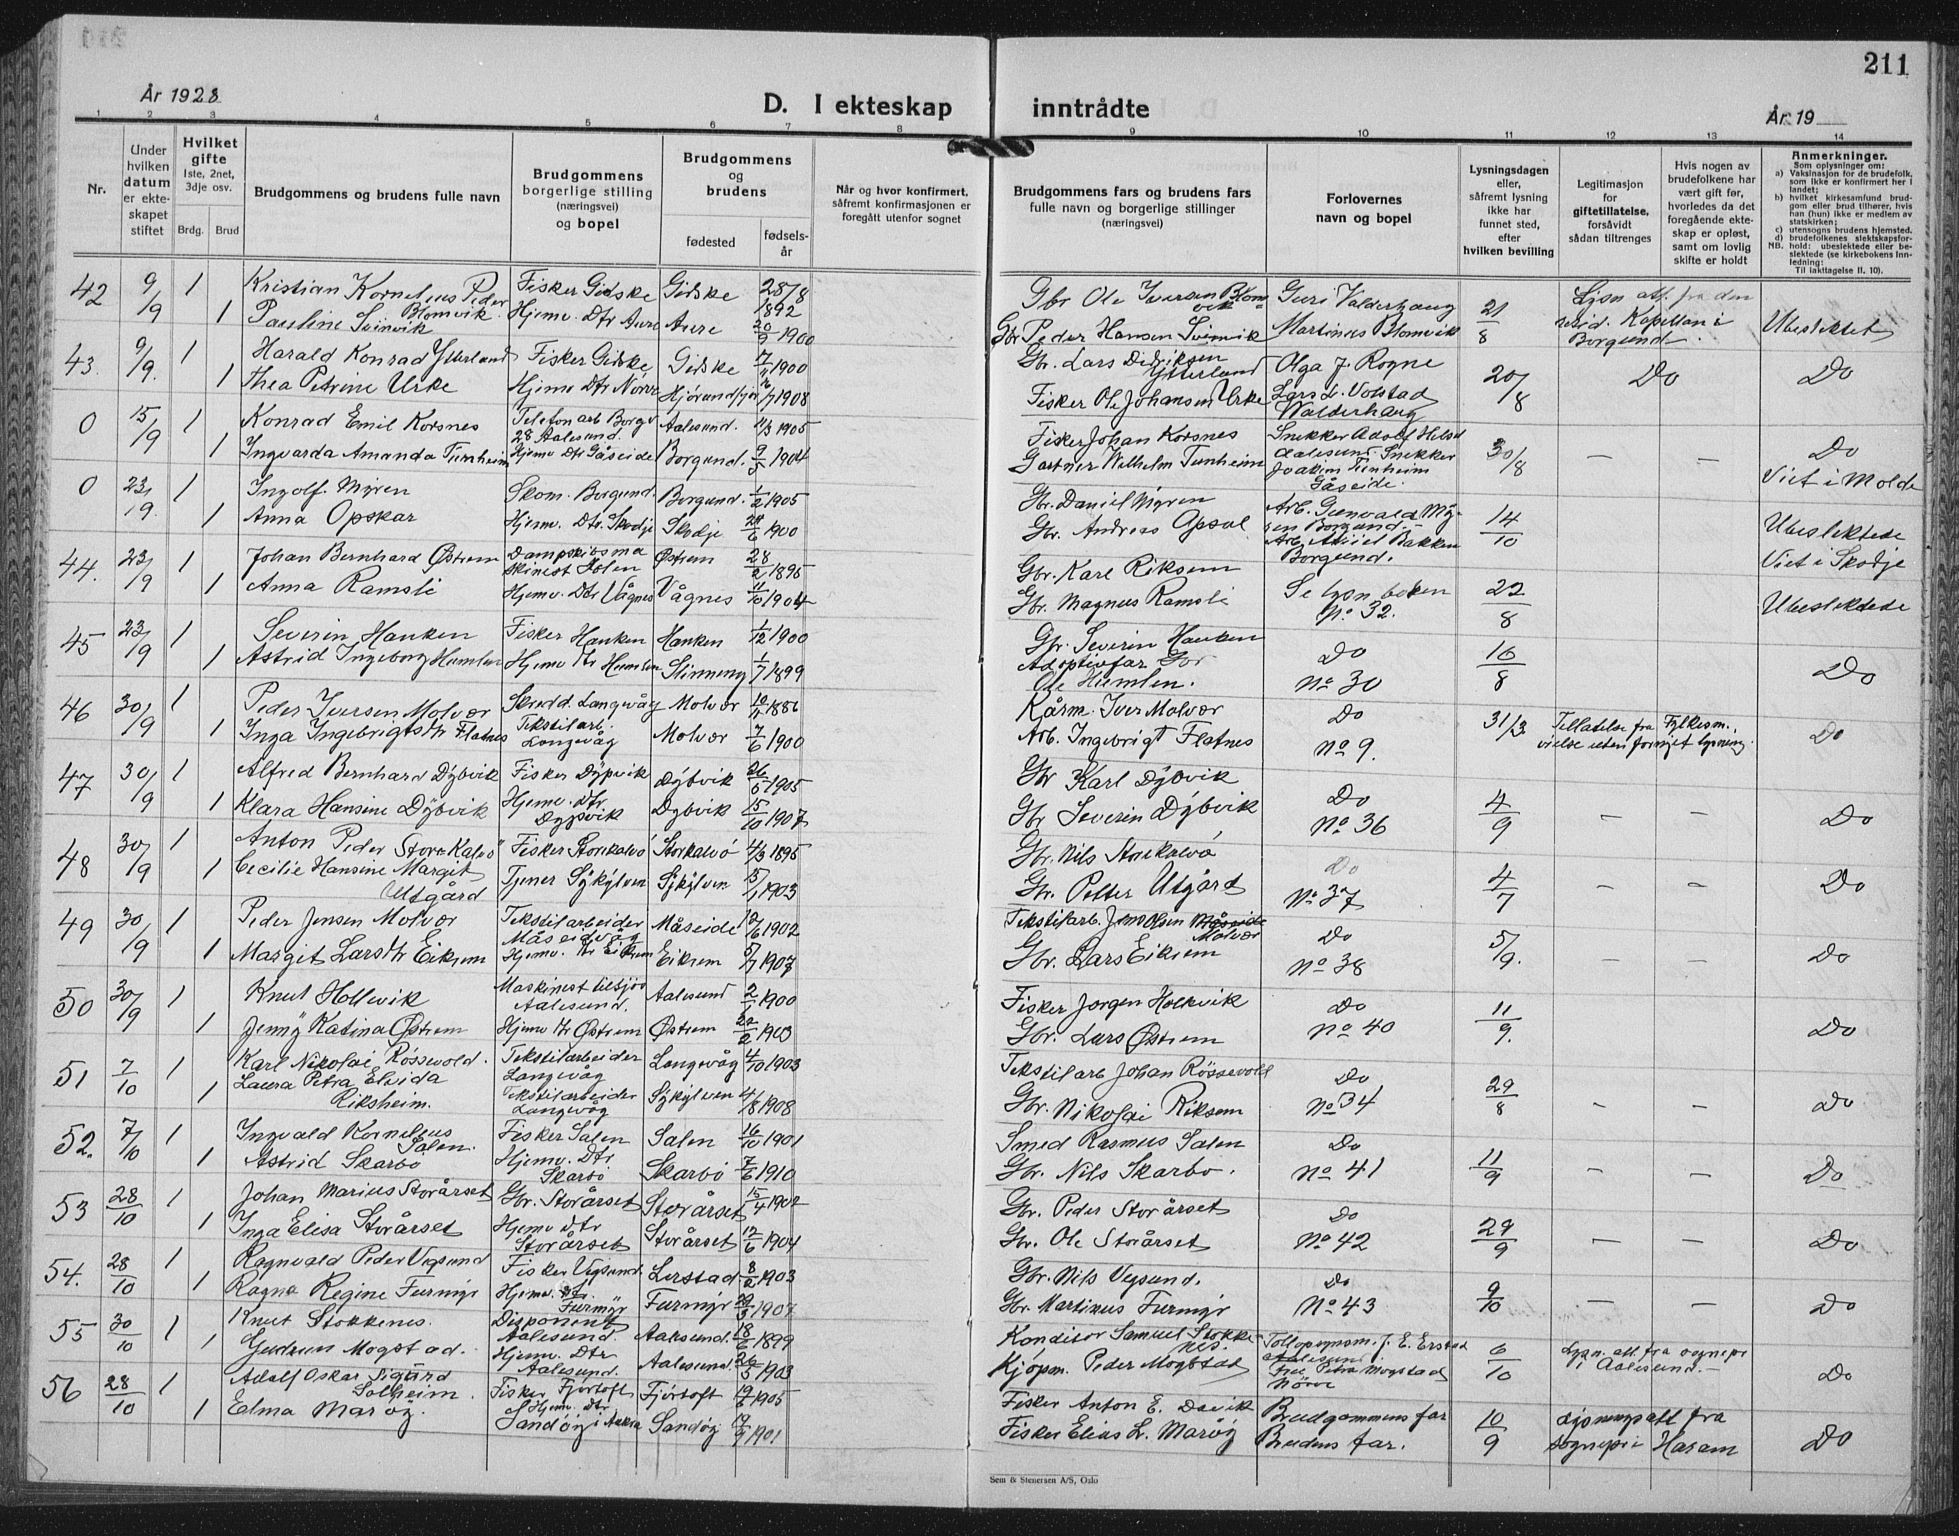 211
År 1928
D. I ekteskap
inntrådte
År 19
1 2 3 4 5 6 7 8 9 10 11 12 13 14
Nr.
Under hvilken datum er ekteskapet stiftet
Hvilket gifte
1ste, 2net, 3dje osv.
Brdg. Brud
Brudgommens og brudens fulle navn
Brudgommens borgerlige stilling (næringsvei) og bopel
Brudgommens og brudens
fødested
fødselsår
Når og hvor konfirmert, såfremt konfirmasjonen er foregått utenfor sognet
Brudgommens fars og brudens fars
fulle navn og borgerlige stillinger
(næringsvei)
Forlovernes navn og bopel
Lysningsdagen eller, såfremt lysning ikke har funnet sted, efter hvilken bevilling
Legitimasjon for giftetillatelse, forsåvidt sådan tiltrenges
Hvis nogen av brudefolkene har vært gift før, hvorledes da det foregående ekteskap er opløst, samt om lovlig skifte er holdt
Anmerkninger.
Som oplysninger om:
a) Vaksinasjon for de brudefolk, som ikke er konfirmert her i landet;
b) hvilket kirkesamfund brudgom eller brud tilhører, hvis han (hun) ikke er medlem av statskirken;
c) utensogns brudens hjemsted.
d) brudefolkenes slektskapsforhold: ubeslektede eller beslektede (se kirkebokens Innledning:
NB.
Til iakttagelse II. 10).
42 9/9 1 Kristian Kornelius Peder Blomvik. Fisker Gidske Gidske 28/8 1892 Gbr Ole Iversen Blomvik Guri Valderhaug 21/8 Lysn att. fra den
1 Pauline Svinvik Hjemv. Dtr Aure Aure 20/3 1900 Gbr Peder Hansen Svinvik Martinus Blomvik resid. Kapellan i Borgund Ubeslektet
43. 9/9. 1 Harald Konrad Ytterland Fisker Gidske Gidske 1900 Gbr. Lars Didriksen Ytterland Olga J. Rogne 20/8 Do Do
1 Thea Petrine Urke Hjemv Dtr Nörve Hjörundfjör 1908 Fisker Ole Johansen Urke Lars L. Volstad Walderhaug
0 15/9 1 Konrad Emil Korsnes Telefon arb Borgv 28 Aalesund. Aalesund. 1905 Fisker Johan Korsnes Snekker Adolf 30/8 – – Do
1 Ingvarda Amanda Tunheim Hjemv Dtr Gåseide Borgund. 9/5 1904 Gartner Wilhelm Tunheim Aalesund Snekker Joakim Tunheim Gåseide. Viet i Molde
0 23/9. 1 Ingolf Myren Skom. Borgund. Borgund. 1/2 1905 Gbr. Daniel Myren Arb. Myren Borgund. 14/10 Ubeslektede
1 Anna Opskar Hjemv. Dtr. Skodje Skodje 1900 Gbr. Andreas Arb Bakken Borgund. Viet i Skodje
44. 23/9 1 Johan Bernhard Østrem Dampskibsmaskinest Östrem 28/2 1895 Gbr. Karl Riksem Se lysn boken No. 32. 22/8 Ubeslektede
1 Anna Ramsli Hjemv. Dtr Vågnes Vågnes 11/10 1904 Gbr. Magnus Ramsli
45 23/9 1 Severin Hanken Fisker Hanken Hanken 1/12 1900 Gbr. Severin Hanken Do No 30 16/8 Do
1 Astrid Ingeborg Humlen Hjemv Dtr Humlen Slinning 1/7 1899 Adoptivfar Gbr Ole Humlen.
46 30/9 1 Peder Iversen Molvær Skredd. Langevåg Molvær 1886 Kårm. Iver Molvær Do No 9. 31/3 Tillatelse fra Fylkesm. Do
1 Inga Ingebrigtsdtr Flatnes Tekstilarb. Langevåg Molvær 7/6 1900 Arb. Ingebrigt Flatnes vielse uten fornyet lysning.
47 30/9 1 Alfred Bernhard Dybvik Fisker Dypvik Dybvik 1905 Gbr Karl Dybvik Do No 36 4/9 – – Do
1 Klara Hansine Dybvik Hjemv. Dtr Dypvik Dybvik 15/10 1907 Gbr Severin Dybvik
48 30/9 1 Anton Peder Store Kalvö Fisker Storekalvö Storkalvö 4/3 1895 Gbr. Nils Storekalvö Do No 37 4/7 – – Do
1 Cecilie Hansine Margit Utgård Tjener Sykylven Sykylven 5/1 1903 Gbr. Petter Utgård
49 30/9 1 Peder Jensen Molvær Tekstilarbeider Måseidevåg Måseide 1902 Tekstilarb. Jens Olsen Måseide Molvær Do No 38 5/9. – – Do
1 Margit Larsdtr Eikrem Hjemv. Dtr Eikrem Eikrem 5/7 1907 Gbr. Lars Eikrem
50 30/9 1 Knut Hollevik Maskinest tilsjös Aalesund. Aalesund 1900 Fisker Jorgen Holkvik Do No 40 11/9. Do
1 Jenny Katina Østrem Hjemv Dtr Østrem Østrem 22/2 1903 Gbr. Lars Østrem
51 7/10 1 Karl Nikolai Rössevold. Tekstilarbeider Langevåg Langevåg 4/10 1903 Tekstilarb Johan Rössevold Do No 34 29/8 – – Do
1 Laura Petra Elvida Riksheim. Tekstilarbeider Langevåg Sykylven 4/8 1908 Gbr. Nikolai Riksem
52. 7/10 1 Ingvald Kornelius Salen. Fisker Salen Salen 16/10 1901 Smed Rasmus Salen Do No 41 11/9 – – Do
1 Astrid Skarbö Hjemv. Dtr Skarbö Skarbö 7/6 1910 Gbr. Nils Skarbö.
53 28/10 1 Johan Marius Storårset Gbr. Storårset Storårset 15/4 1902 Gbr. Peder Storårset Do No 42 29/9 – – Do
1 Inga Elisa Storårset Hjemv dtr Storårset Storårset 12/6 1904 Gbr. Ole Storårset
54. 28/10 1 Ragnvald Peder Vegsund Fisker Vegsund Lerstad 8/2 1903 Gbr. Nils Vegsund. Do No 43 9/10 – – Do
1 Ragna Regine Furmyr Hjemv. dtr. Furmyr Furmyr 1907 Gbr. Martinus Furmyr
55 30/10 1 Knut Stokkenes. Disponent Aalesund. Aalesund. 18/6 1899 Konditor Samuel Stokkenes. Tollopsynsm. J. E. Erstad Aalesund 6/10 Lysn. att. fra sognepr i Aalesund. Do
1 Gudrun Mogstad. Hjemv. Dtr Aalesund. Aalesund. 1903 Kjöpm. Peder Mogstad Petra Mogstad Nörve
56 28/10 1 Adolf Oskar Sigurd Solheim. Fisker Fjörtoft Fjörtoft 19/6 1905 Fisker Anton E. Brudgommens far 10/9 Lysningsatt fra Do
1 Elma Maröy. Hjemv. dtr Sandöy i Aukra Sandöy 1901 Fisker Elias L. Maröy Brudens far. sognepr i Haram
Sem & Stenersen A/S, Oslo